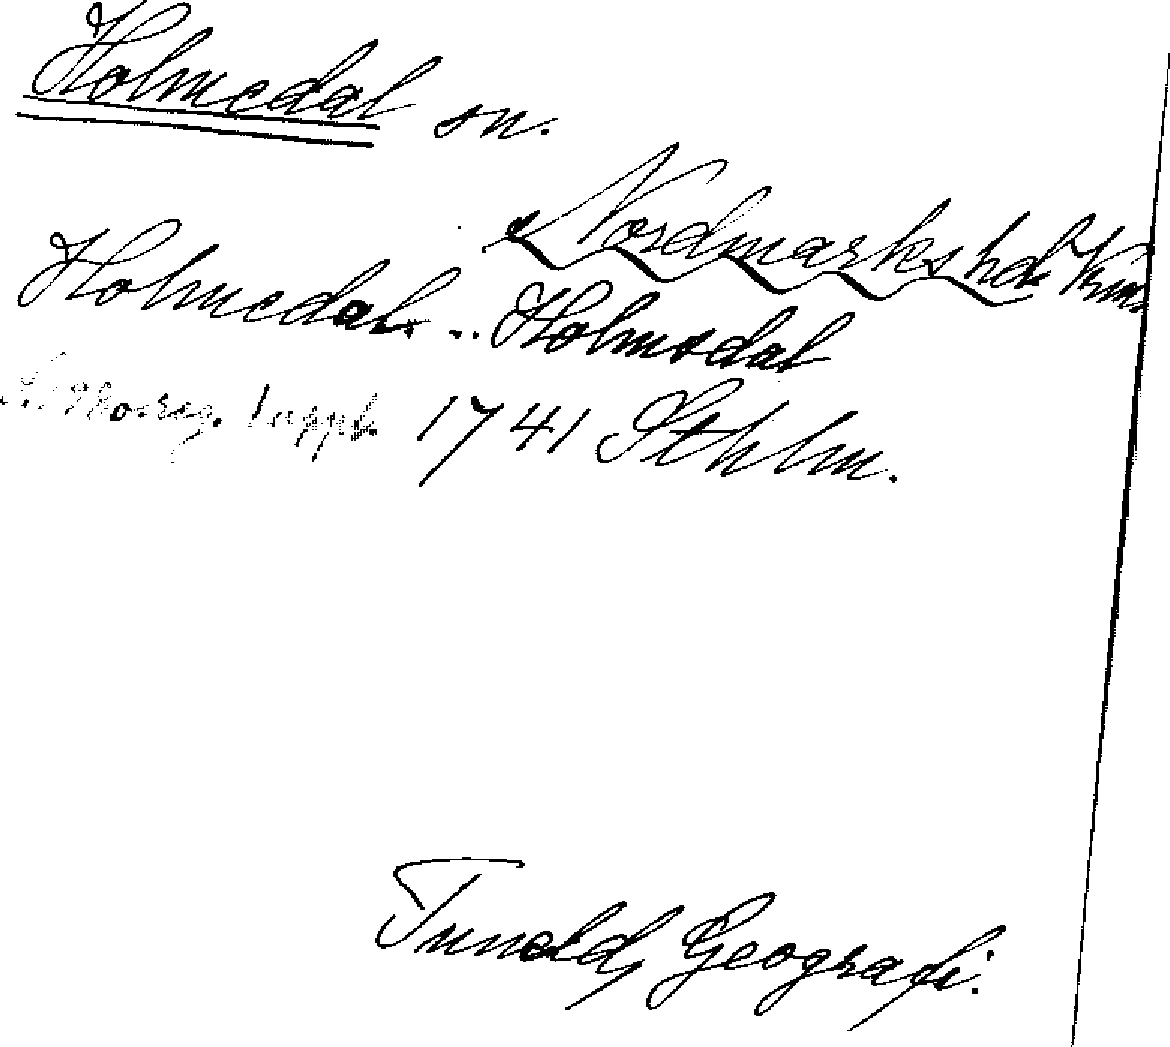 Holmedal sn.
Nordmarks hd Vrm
Holmedal .. Holmedal
1741 Sthlm.
Tunelds Geografi.